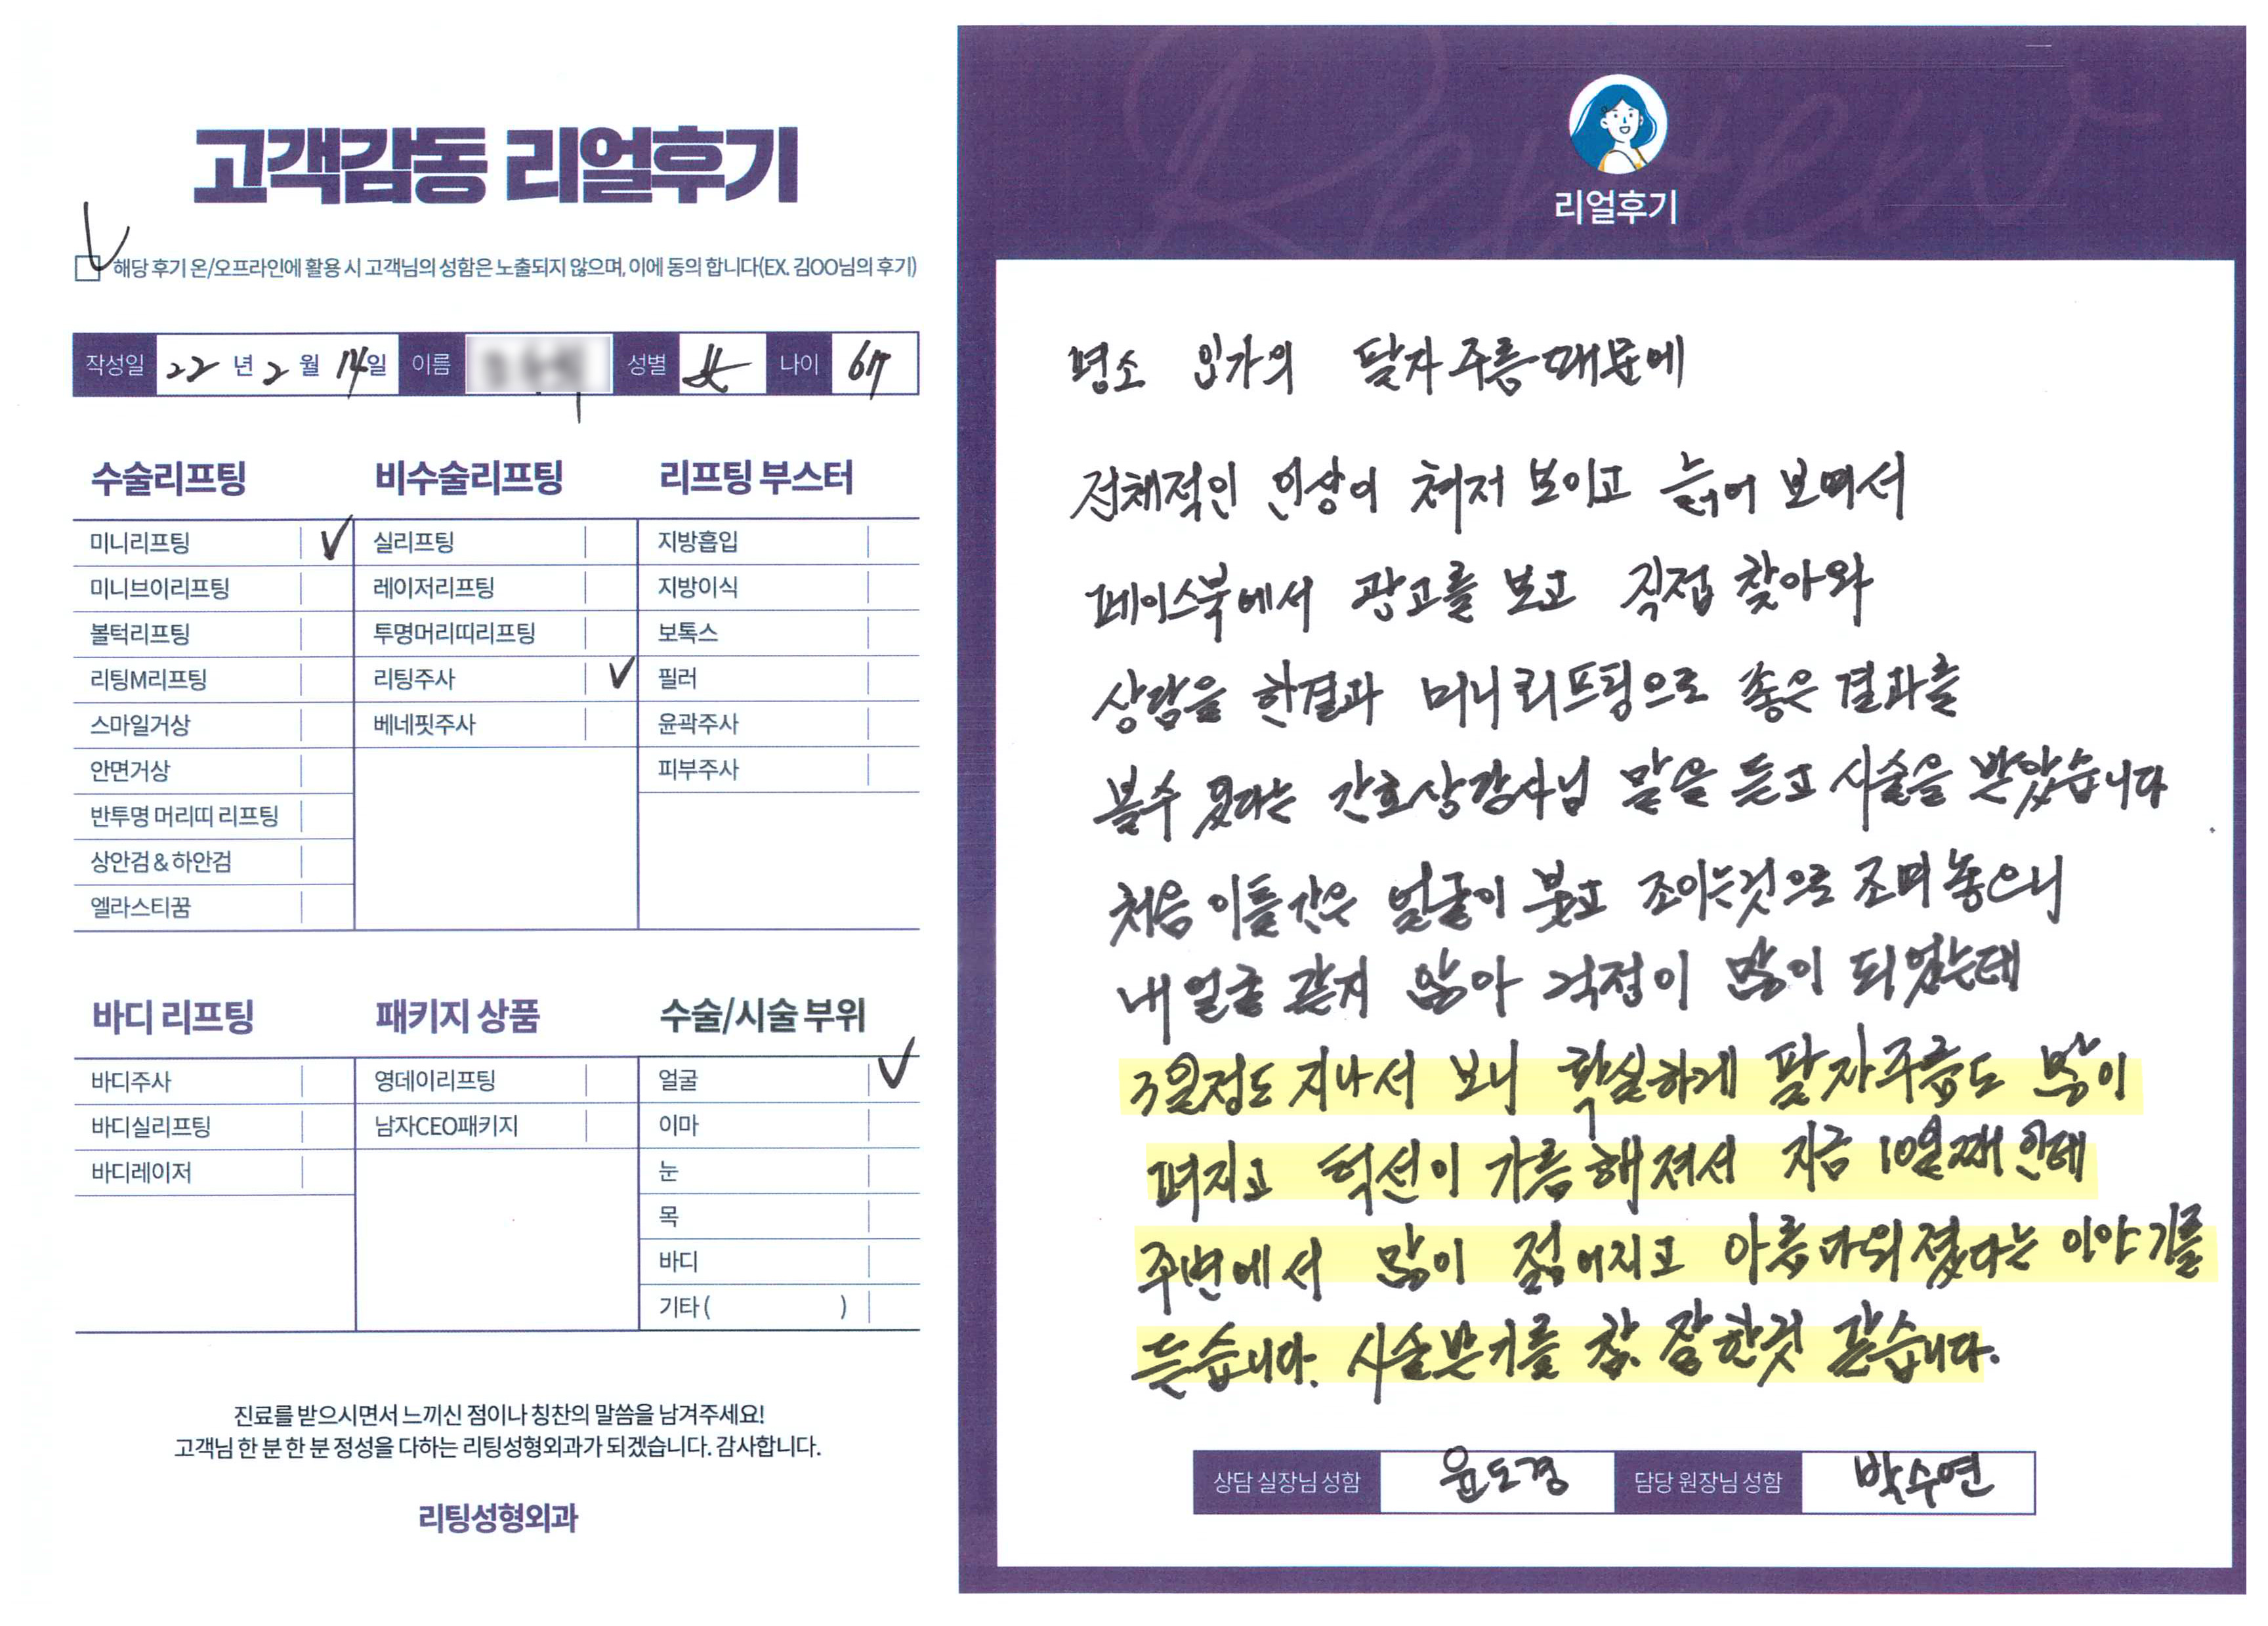 고객감동 리얼후기
해당 후기 온/오프라인에 활용 시 고객님의 성함은 노출되지 않으며, 이에 동의 합니다(EX. 김OO님의 후기)
작성일 22 년 2 월 14일 이름 성별 女 나이 67
수술리프팅
미니리프팅
미니브이리프팅
볼턱리프팅
리팅M리프팅
스마일거상
안면거상
반투명 머리띠 리프팅
상안검 & 하안검
엘라스티꿈
비수술리프팅
실리프팅
레이저리프팅
투명머리띠리프팅
리팅주사
베네핏주사
리프팅 부스터
지방흡입
지방이식
보톡스
필러
윤곽주사
피부주사
바디 리프팅
바디주사
바디실리프팅
바디레이저
패키지 상품
영데이리프팅
남자CEO패키지
수술/시술 부위
얼굴
이마
눈
목
바디
기타 ( )
진료를 받으시면서 느끼신 점이나 칭찬의 말씀을 남겨주세요!
고객님 한 분 한 분 정성을 다하는 리팅성형외과가 되겠습니다. 감사합니다.
리팅성형외과
Review
리얼후기
평소 입가의 팔자 주름때문에
전체적인 인상이 쳐저 보이고 늙어 보여서
페이스북에서 광고를 보고 직접 찾아와
상담을 한결과 미니리프팅으로 좋은 결과를
볼수 있다는 간호상담사님 말을 듣고 시술을 받았습니다
처음 이틀간은 얼굴이 붓고 조이는것으로 조여놓으니
내 얼굴 같지 않아 걱정이 많이 되었는데
3일정도 지나서 보니 확실하게 팔자주름도 많이
펴지고 턱선이 갸름해져서 지금 10일째 인데
주변에서 많이 젊어지고 아름다워졌다는 이야기를
듣습니다. 시술받기를 참 잘한것 같습니다.
상담 실장님 성함 윤도경 담당 원장님 성함 박수연